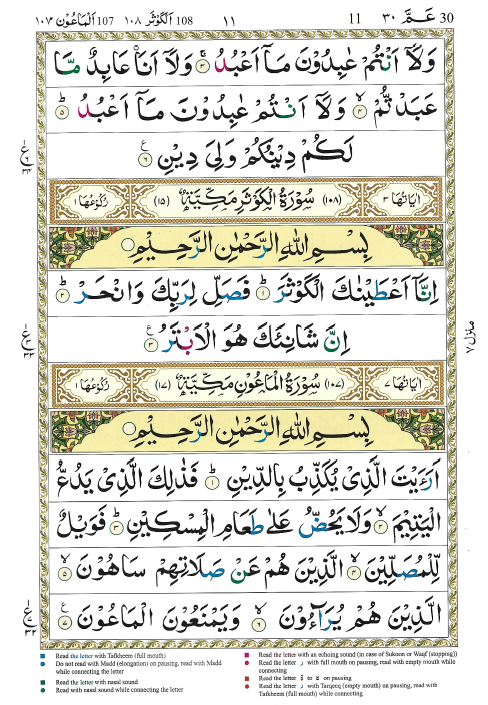 ١٠٧ اَلْمَاعُوْن 107 ١٠٨ اَلْكَوْثَر 108 ١١ 11 عَمَّ ٣٠ 30
وَلَاۤ اَنْتُمْ عٰبِدُوْنَ مَاۤ اَعْبُدُ ۚ﴿۳﴾ وَلَاۤ اَنَا عَابِدٌ مَّا
عَبَدْتُّمْ ۙ﴿۴﴾ وَلَاۤ اَنْتُمْ عٰبِدُوْنَ مَاۤ اَعْبُدُ ؕ﴿۵﴾
لَكُمْ دِيْنُكُمْ وَلِیَ دِيْنِ ﴿۶﴾
اٰيَاتُهَا ٣ (١٠٨) سُوْرَةُ الْكَوْثَرِ مَكِّيَّةٌ (١٥) رُكُوْعُهَا ١
بِسْمِ اللهِ الرَّحْمٰنِ الرَّحِيْمِ
اِنَّاۤ اَعْطَيْنٰكَ الْكَوْثَرَ ؕ﴿۱﴾ فَصَلِّ لِرَبِّكَ وَانْحَرْ ؕ﴿۲﴾
اِنَّ شَانِئَكَ هُوَ الْاَبْتَرُ ﴿۳﴾
اٰيَاتُهَا ٧ (١٠٧) سُوْرَةُ الْمَاعُوْنِ مَكِّيَّةٌ (١٧) رُكُوْعُهَا ١
بِسْمِ اللهِ الرَّحْمٰنِ الرَّحِيْمِ
اَرَءَيْتَ الَّذِیْ يُكَذِّبُ بِالدِّيْنِ ؕ﴿۱﴾ فَذٰلِكَ الَّذِیْ يَدُعُّ
الْيَتِيْمَ ۙ﴿۲﴾ وَلَا يَحُضُّ عَلٰی طَعَامِ الْمِسْكِيْنِ ؕ﴿۳﴾ فَوَيْلٌ
لِّلْمُصَلِّيْنَ ۙ﴿۴﴾ الَّذِيْنَ هُمْ عَنْ صَلَاتِهِمْ سَاهُوْنَ ۙ﴿۵﴾
الَّذِيْنَ هُمْ يُرَآءُوْنَ ۙ﴿۶﴾ وَيَمْنَعُوْنَ الْمَاعُوْنَ ﴿۷﴾
منزل ٧
Read the letter with Tafkheem (full mouth)
Do not read with Madd (elongation) on pausing, read with Madd
while connecting the letter
Read the letter with nasal sound
Read with nasal sound while connecting the letter
Read the letter with an echoing sound (in case of Sukoon or Waqf (stopping))
Read the letter ر with full mouth on pausing, read with empty mouth while
connecting
Read the letter ة to ه on pausing
Read the letter ر with Tarqeeq (empty mouth) on pausing, read with
Tafkheem (full mouth) while connecting